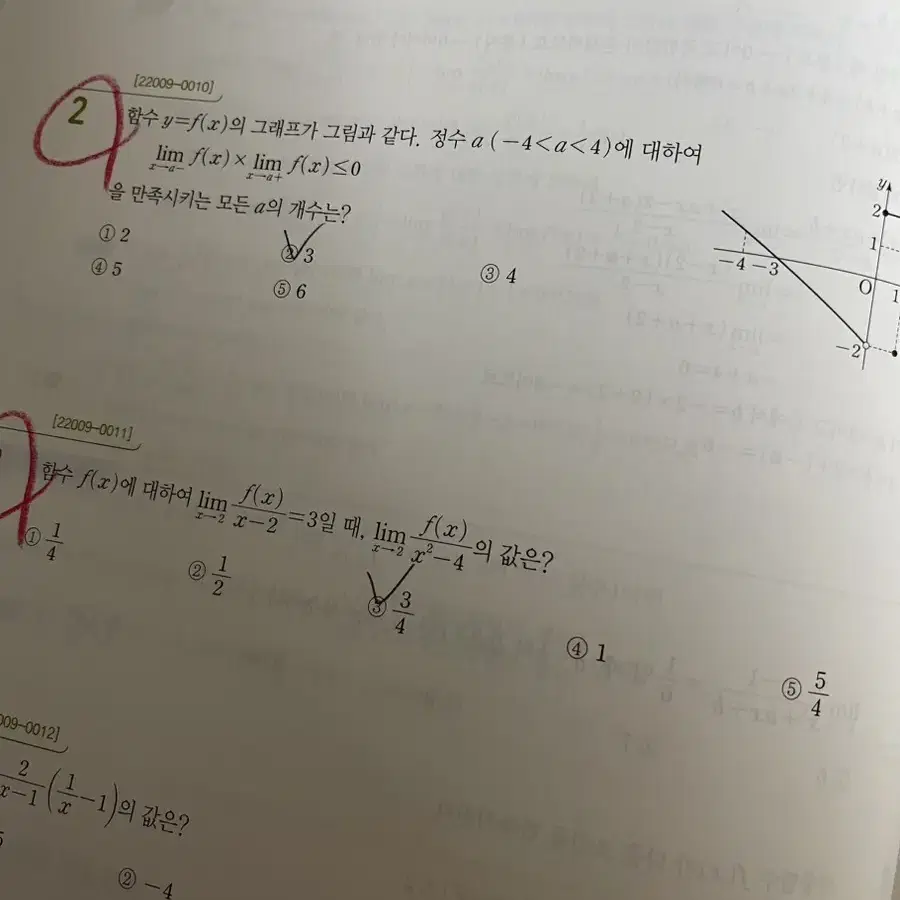 [22009-0010]
2 함수 y=f(x)의 그래프가 그림과 같다. 정수 a (-4<a<4)에 대하여
lim x→a- f(x)× lim x→a+ f(x)≤0
을 만족시키는 모든 a의 개수는?
① 2 ② 3 ③ 4
④ 5 ⑤ 6
y
2
1
-4 -3 O 1
-2
[22009-0011]
함수 f(x)에 대하여 lim x→2 f(x)/(x-2)=3일 때, lim x→2 f(x)/(x²-4)의 값은?
① 1/4 ② 1/2 ③ 3/4 ④ 1 ⑤ 5/4
009-0012]
2/(x-1)(1/x-1)의 값은?
② -4